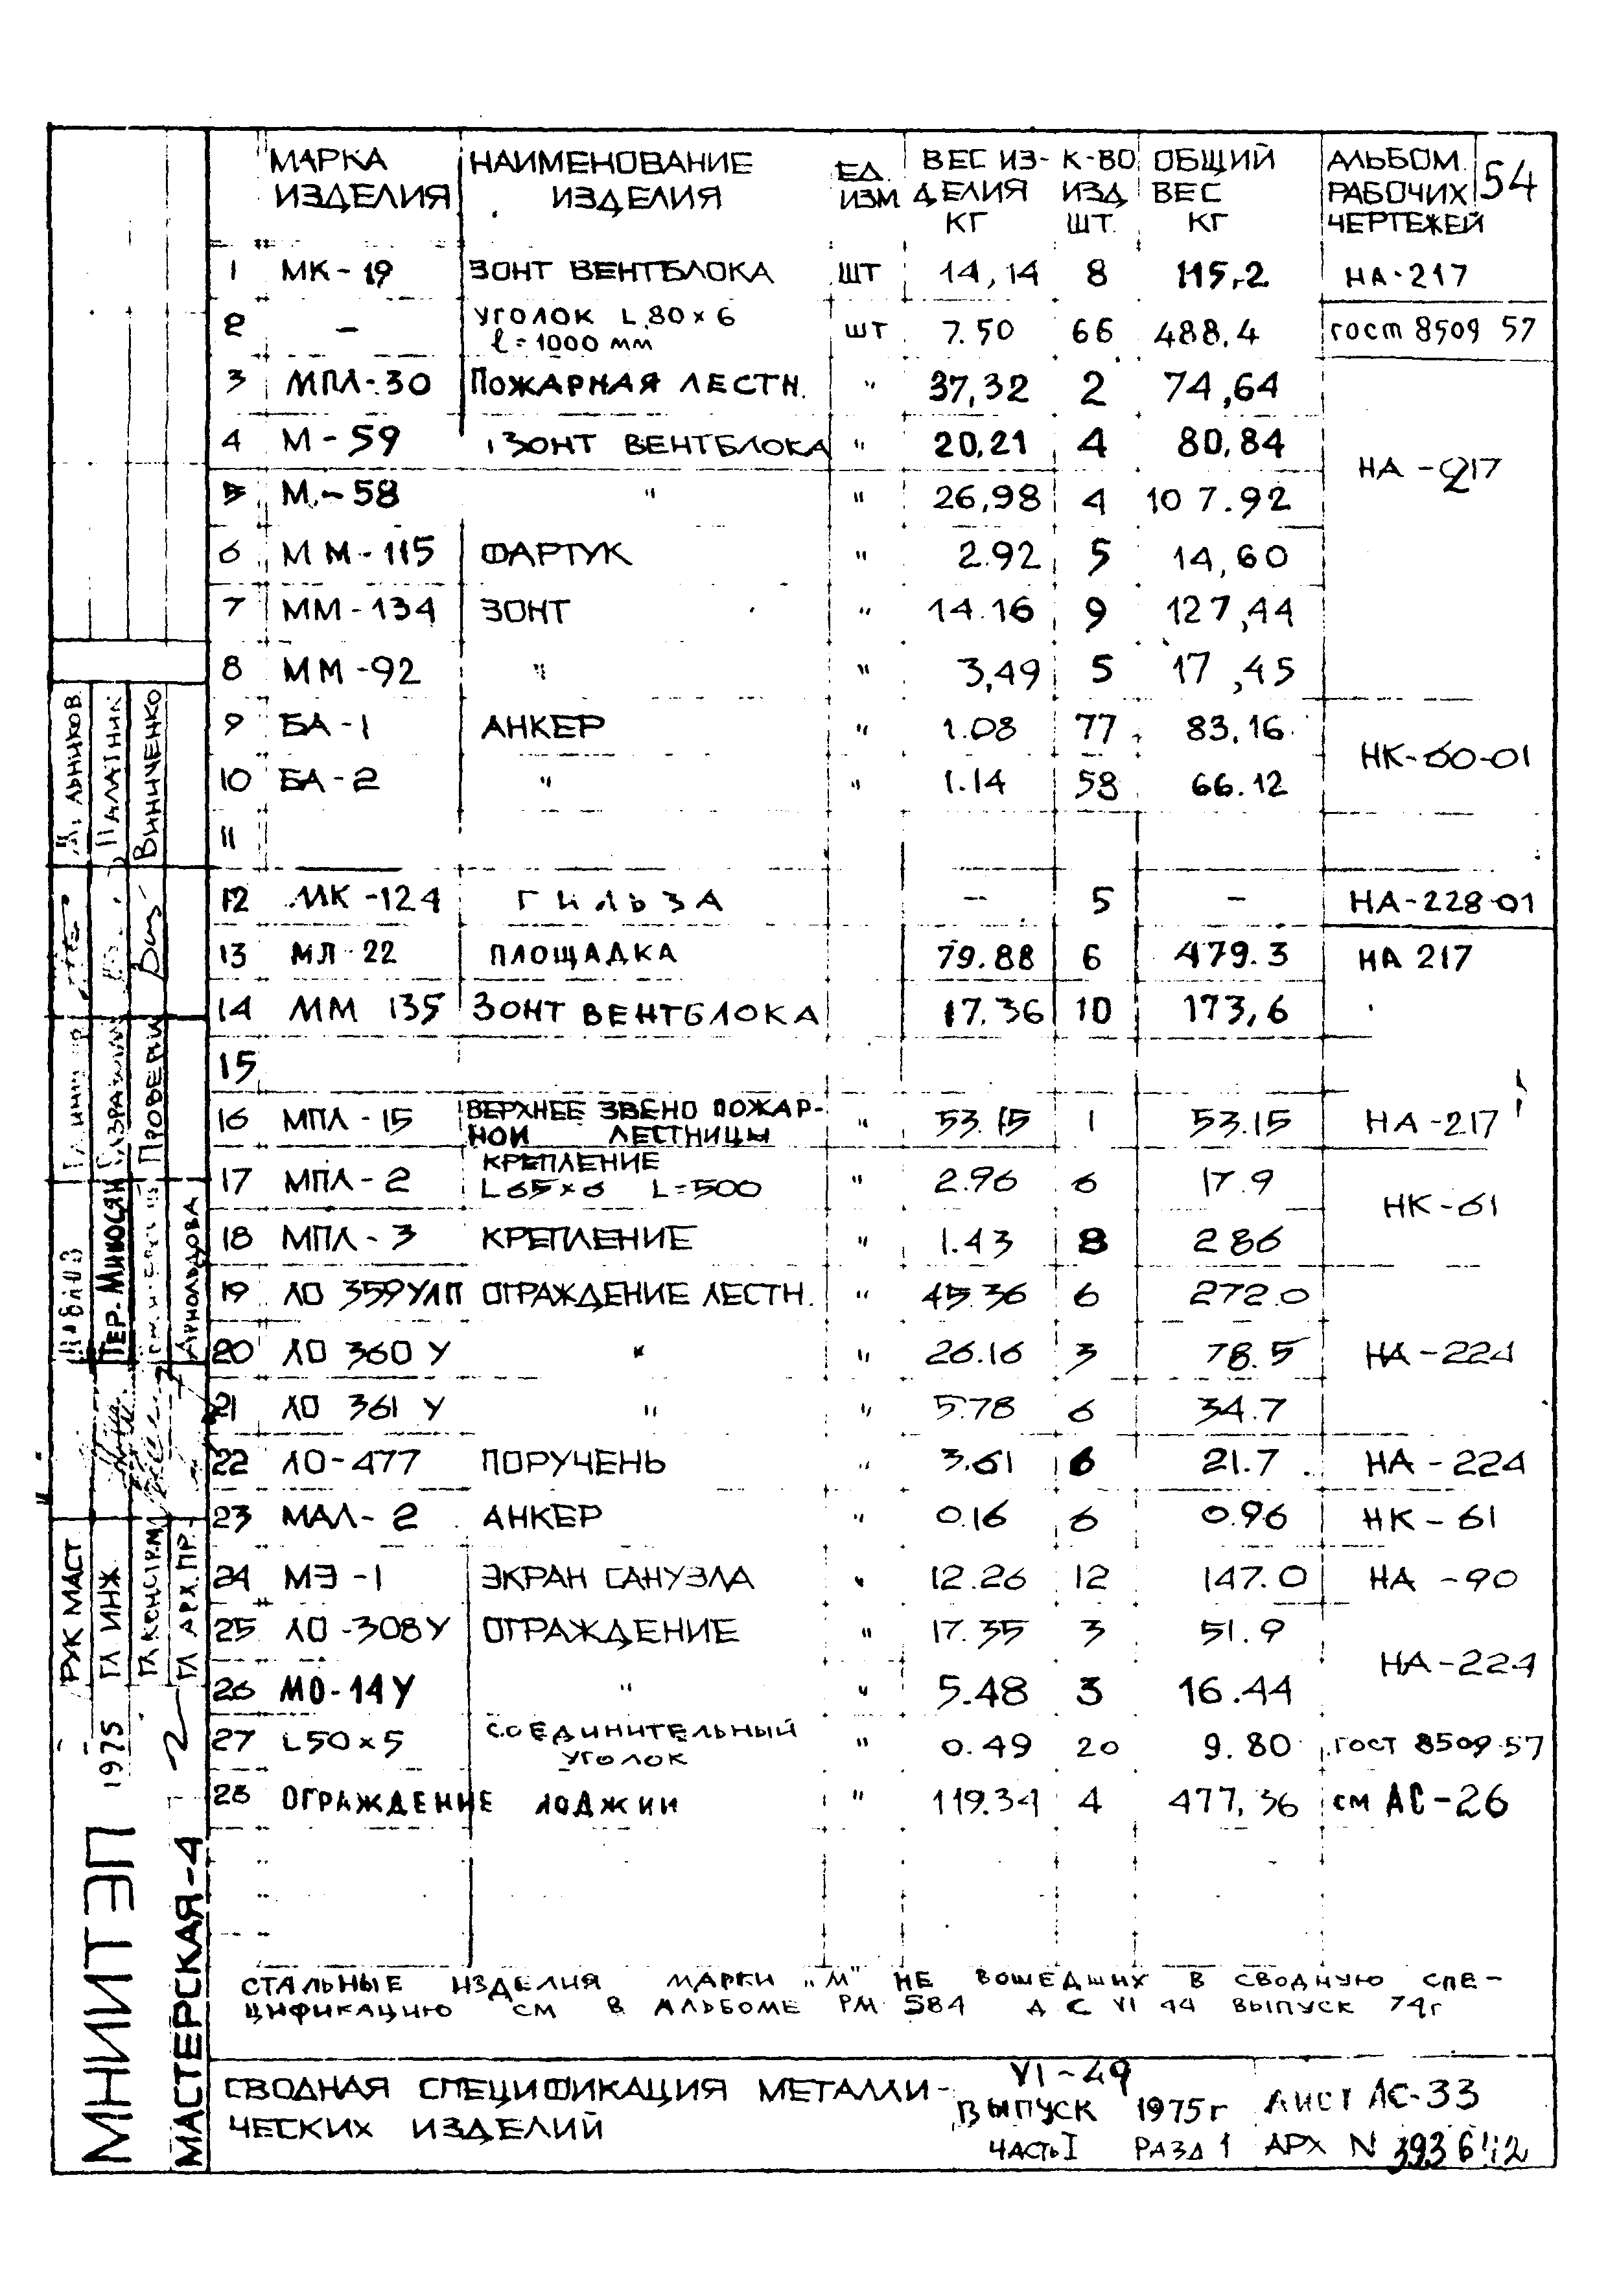 МАРКА ИЗДЕЛИЯ НАИМЕНОВАНИЕ ИЗДЕЛИЯ ЕД. ИЗМ ВЕС ИЗ-ДЕЛИЯ КГ К-ВО ИЗД ШТ. ОБЩИЙ ВЕС КГ АЛЬБОМ РАБОЧИХ ЧЕРТЕЖЕЙ 54
1 МК-19 ЗОНТ ВЕНТБЛОКА ШТ 14,14 8 115,2 НА-217
2 – УГОЛОК L 80×6
ℓ=1000 мм ШТ 7.50 66 488.4 ГОСТ 8509 57
3 МПЛ-30 ПОЖАРНАЯ ЛЕСТН. " 37,32 2 74,64
4 М-59 ЗОНТ ВЕНТБЛОКА " 20,21 4 80,84 НА-217
5 М-58 " " 26,98 4 107.92
6 ММ-115 ФАРТУК " 2.92 5 14,60
7 ММ-134 ЗОНТ " 14.16 9 127,44
8 ММ-92 " " 3,49 5 17,45
9 БА-1 АНКЕР " 1.08 77 83,16 НК-60-01
10 БА-2 " " 1.14 58 66.12
11
12 МК-124 ГИЛЬЗА – 5 – НА-228-01
13 МЛ-22 ПЛОЩАДКА 79.88 6 479.3 НА 217
14 ММ 135 ЗОНТ ВЕНТБЛОКА 17.36 10 173,6
15
16 МПЛ-15 ВЕРХНЕЕ ЗВЕНО ПОЖАР-
НОЙ ЛЕСТНИЦЫ " 53.15 1 53.15 НА-217
17 МПЛ-2 КРЕПЛЕНИЕ
L 65×6 L=500 " 2.96 6 17.9 НК-61
18 МПЛ-3 КРЕПЛЕНИЕ " 1.43 8 286
19 ЛО 359УЛП ОГРАЖДЕНИЕ ЛЕСТН. " 45.36 6 272.0
20 ЛО 360 У " " 26.16 3 78.5 НА-224
21 ЛО 361 У " " 5.78 6 34.7
22 ЛО-477 ПОРУЧЕНЬ " 3.61 6 21.7 НА-224
23 МАЛ-2 АНКЕР " 0.16 6 0.96 НК-61
24 МЭ-1 ЭКРАН САНУЗЛА " 12.26 12 147.0 НА-90
25 ЛО-308У ОГРАЖДЕНИЕ " 17.35 3 51.9 НА-224
26 МО-14У " " 5.48 3 16.44
27 L50×5 СОЕДИНИТЕЛЬНЫЙ
УГОЛОК " 0.49 20 9.80 ГОСТ 8509-57
28 ОГРАЖДЕНИЕ ЛОДЖИИ " 119.34 4 477,36 см АС-26
СТАЛЬНЫЕ ИЗДЕЛИЯ МАРКИ „М" НЕ ВОШЕДШИХ В СВОДНУЮ СПЕ-
ЦИФИКАЦИЮ СМ В АЛЬБОМЕ РМ 584 Д С VI 44 ВЫПУСК 74г
СВОДНАЯ СПЕЦИФИКАЦИЯ МЕТАЛЛИ-
ЧЕСКИХ ИЗДЕЛИЙ
VI-49
ВЫПУСК 1975г ЛИСТ АС-33
ЧАСТЬ I РАЗД 1 АРХ N
МНИИТЭП
МАСТЕРСКАЯ-4
1975
РУК МАСТ
ГЛ ИНЖ
ГЛ КОНСТР.М
ГЛ АРХ.ПР.
АРНОЛЬДОВА
ПРОВЕРИЛ
ВИННИЧЕНКО
ПАЛАТНИК